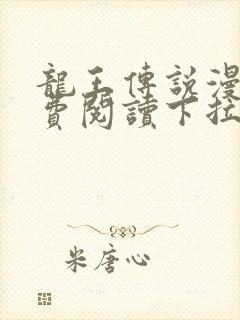 龍王傳說漫
費閱讀下拉
米唐心